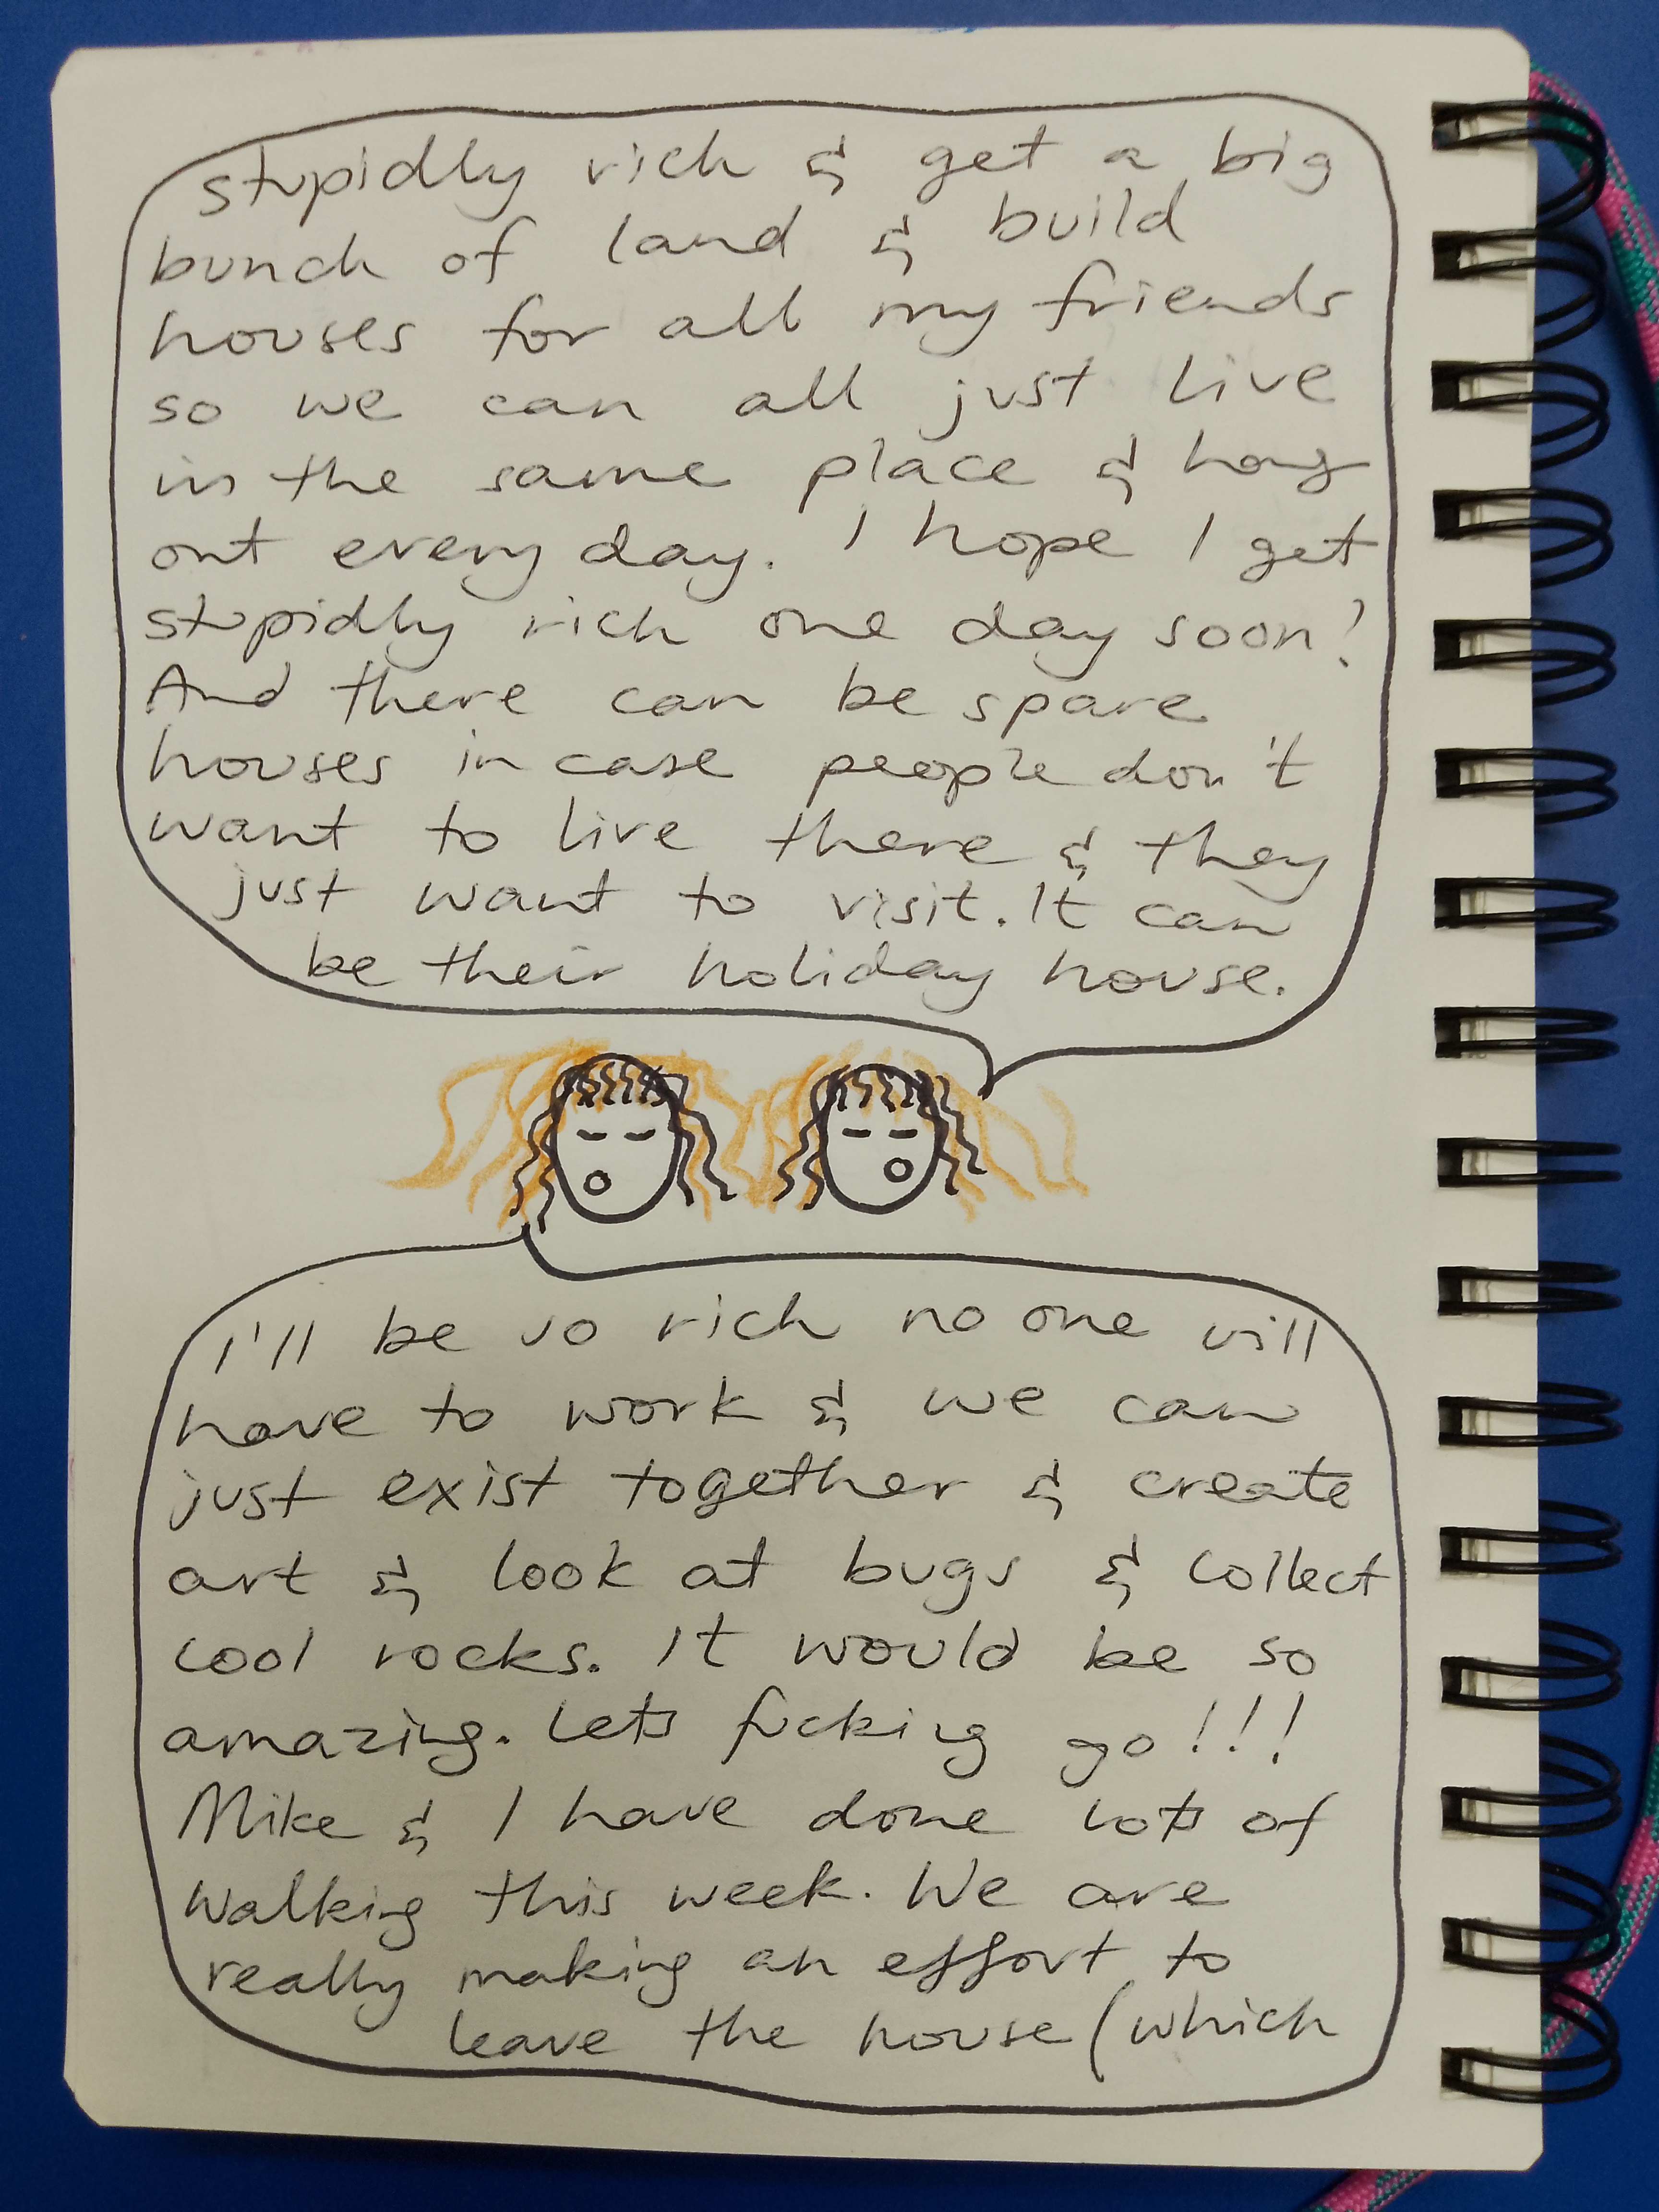 stupidly rich & get a big
bunch of land & build
houses for all my friends
so we can all just live
in the same place & hang
out every day. I hope I get
stupidly rich one day soon!
And there can be spare
houses in case people don't
want to live there & they
just want to visit. It can
be their holiday house.
I'll be so rich no one will
have to work & we can
just exist together & create
art & look at bugs & collect
cool rocks. It would be so
amazing. Lets fucking go!!!
Mike & I have done lots of
walking this week. We are
really making an effort to
leave the house (which